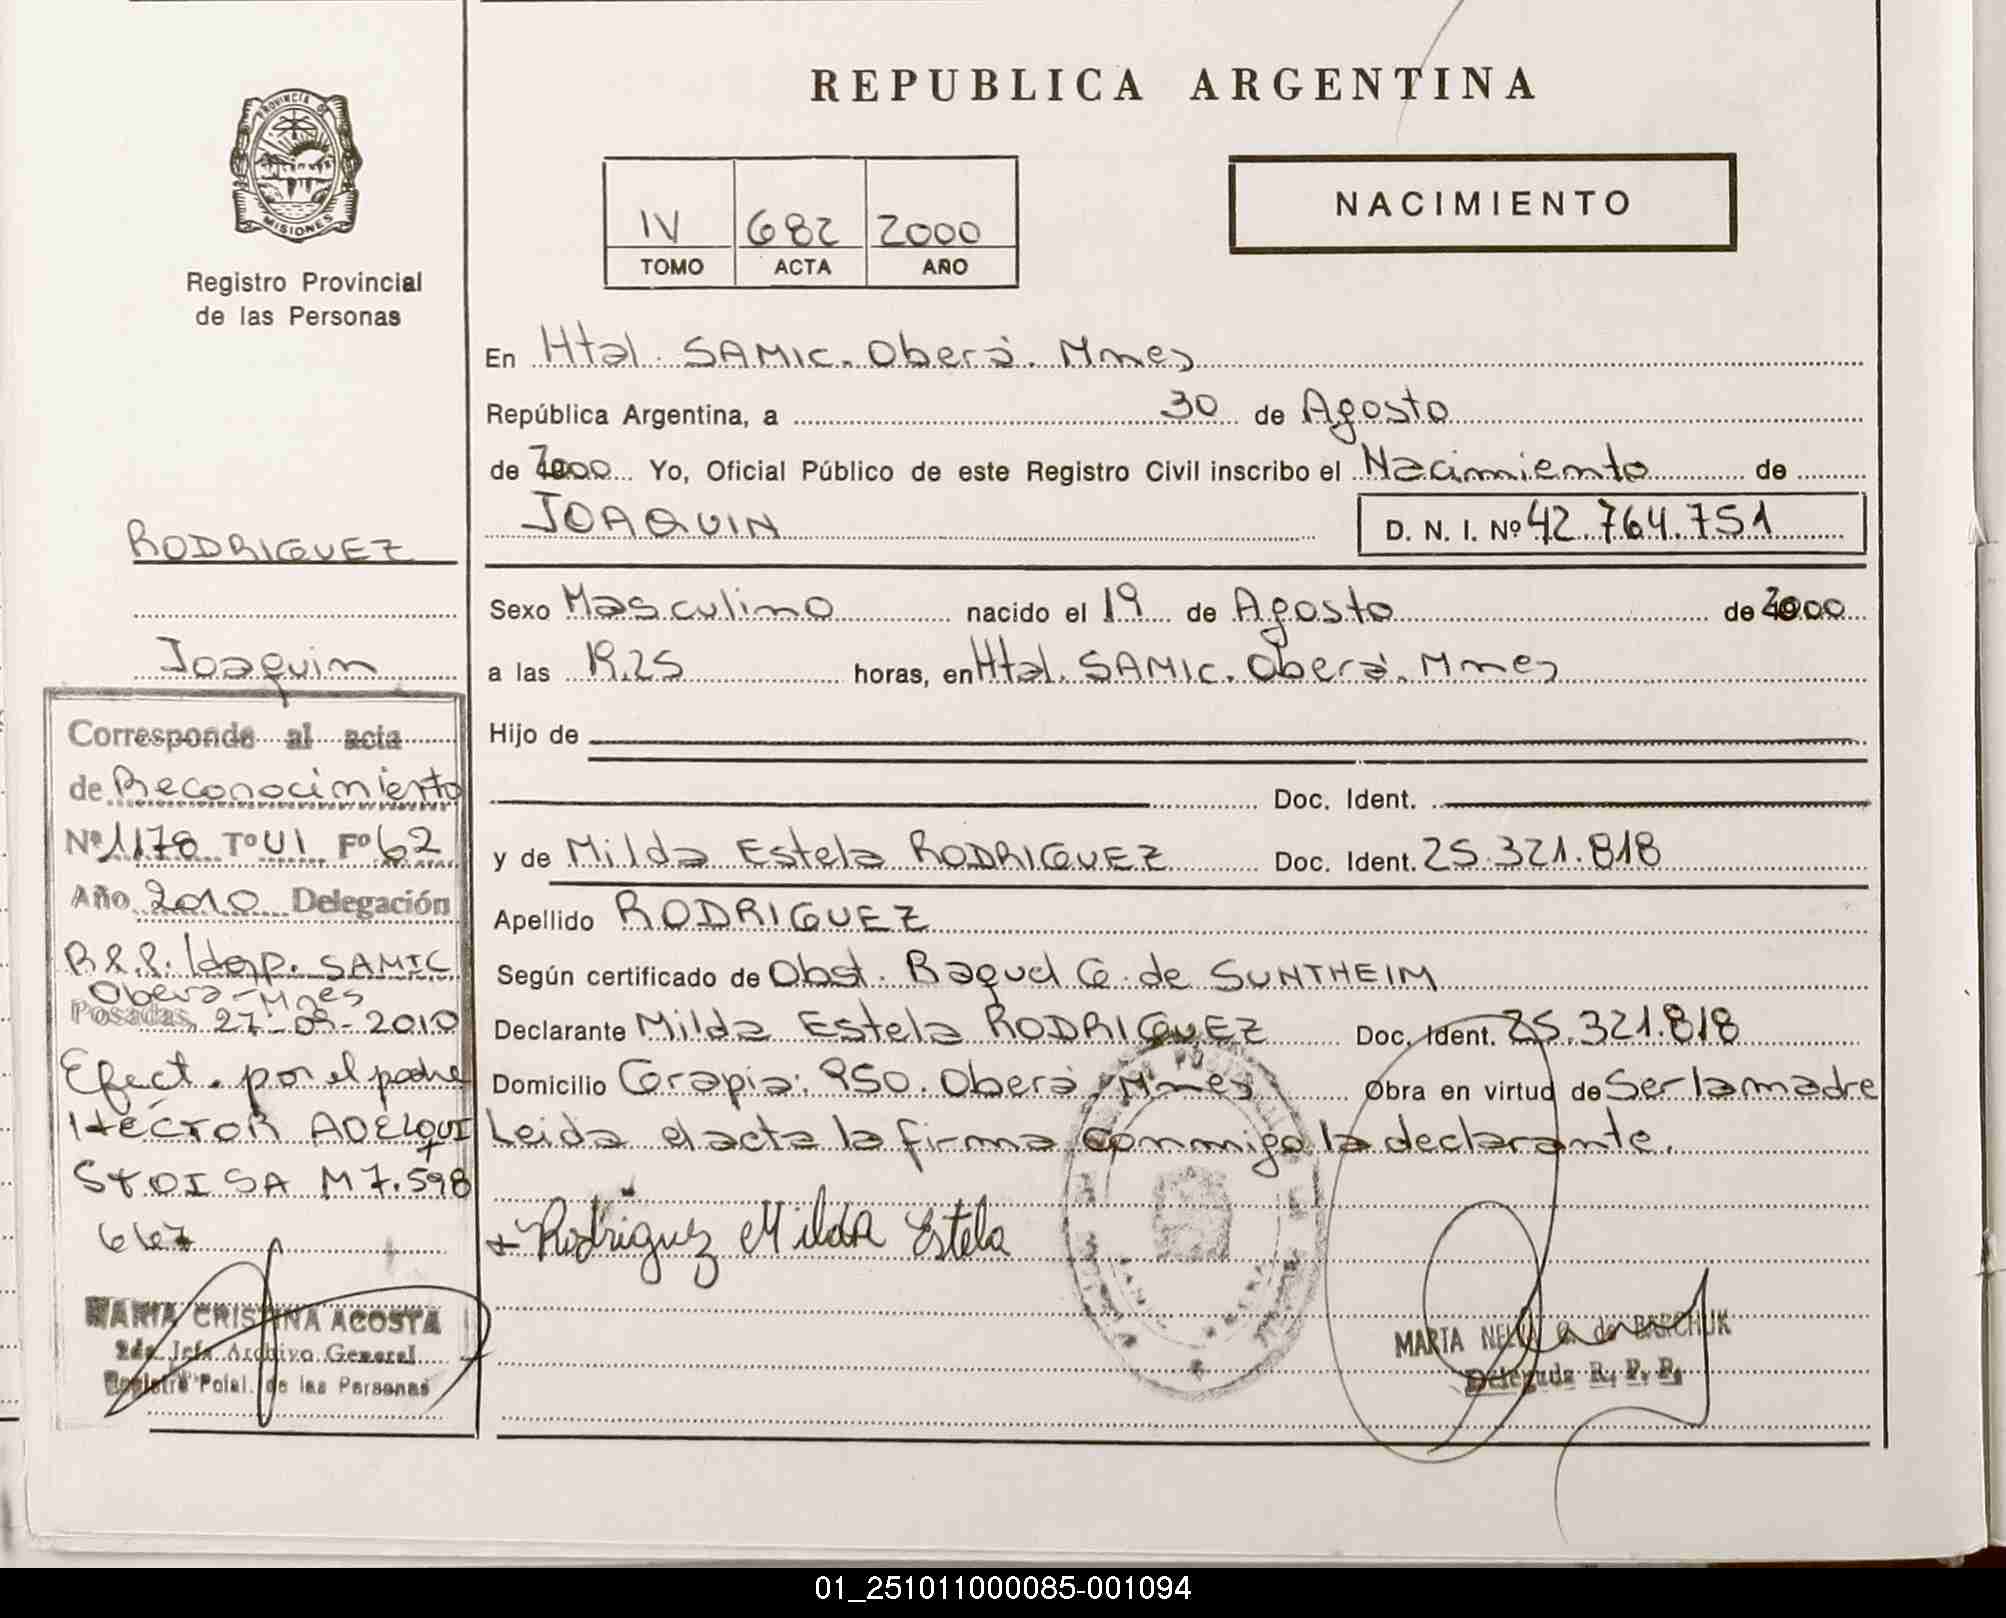 REPUBLICA ARGENTINA
PROVINCIA DE
MISIONES
Registro Provincial
de las Personas
IV 682 2000
TOMO ACTA AÑO
NACIMIENTO
En Htal. SAMIC. Oberá. Mnes
República Argentina, a 30 de Agosto
de 2000 Yo, Oficial Público de este Registro Civil inscribo el Nacimiento de
JOAQUIN D. N. I. Nº 42.764.751
Sexo Masculino nacido el 19 de Agosto de 2000
a las 19.25 horas, en Htal. SAMIC. Oberá. Mnes
Hijo de
Doc. Ident.
y de Milda Estela RODRIGUEZ Doc. Ident. 25.321.818
Apellido RODRIGUEZ
Según certificado de Obst. Raquel G. de SUNTHEIM
Declarante Milda Estela RODRIGUEZ Doc. Ident. 25.321.818
Domicilio Corapia: 950. Oberá, Mnes Obra en virtud de Ser la madre
Leida el acta la firma conmigo la declarante.
Rodriguez Milda Estela
MARTA NELLY de BARCHUK
Delegada R. P. P.
RODRIGUEZ
Joaquin
Corresponde al acta
de Reconocimiento
Nº 1178 Tº UI Fº 62
Año 2010 Delegación
R.P.P. Hosp. SAMIC
Oberá-Mnes
Posadas, 27-09-2010
Efect. por el padre
HÉCTOR ADELQUI
M 7.598
667
MARIA CRISTINA ACOSTA
2da Jefa Archivo General
Registro Pcial. de las Personas
01_251011000085-001094